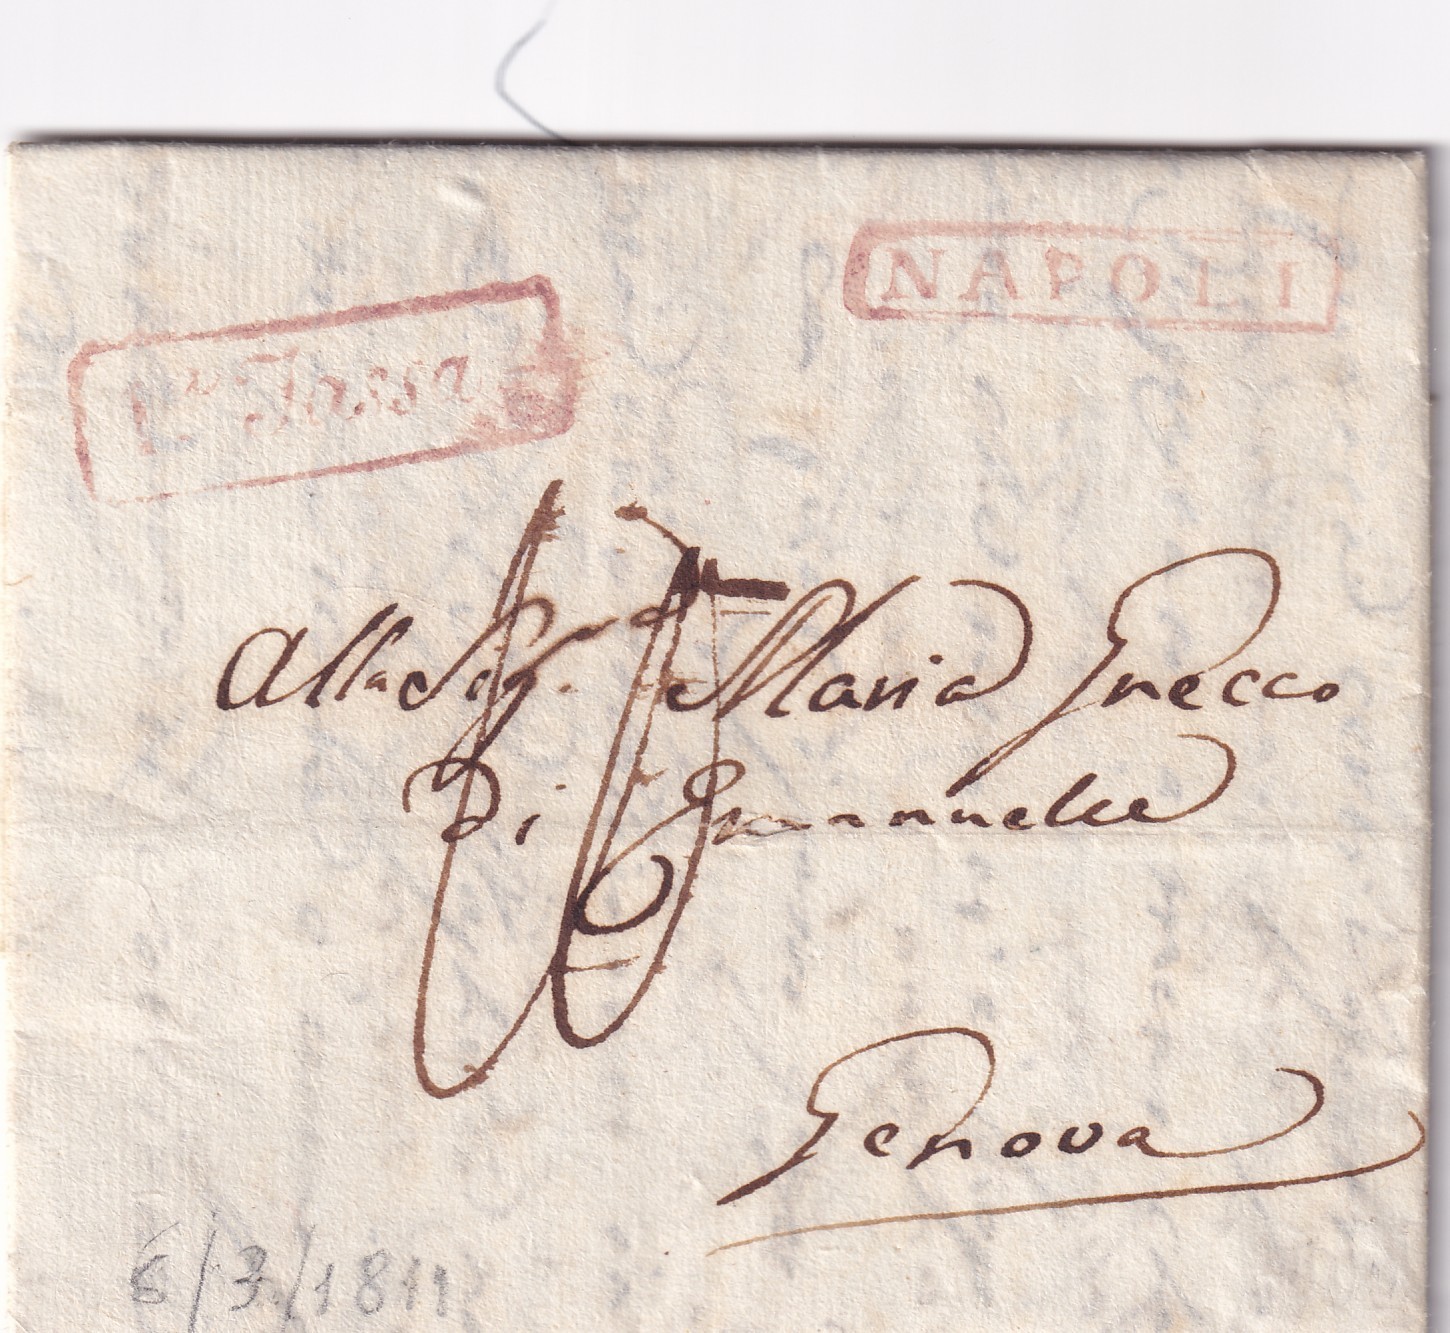 NAPOLI
L.n Tassa
Alla Sig.ra Maria Grecco
Di Emanuelee
Genova
6/3/1811